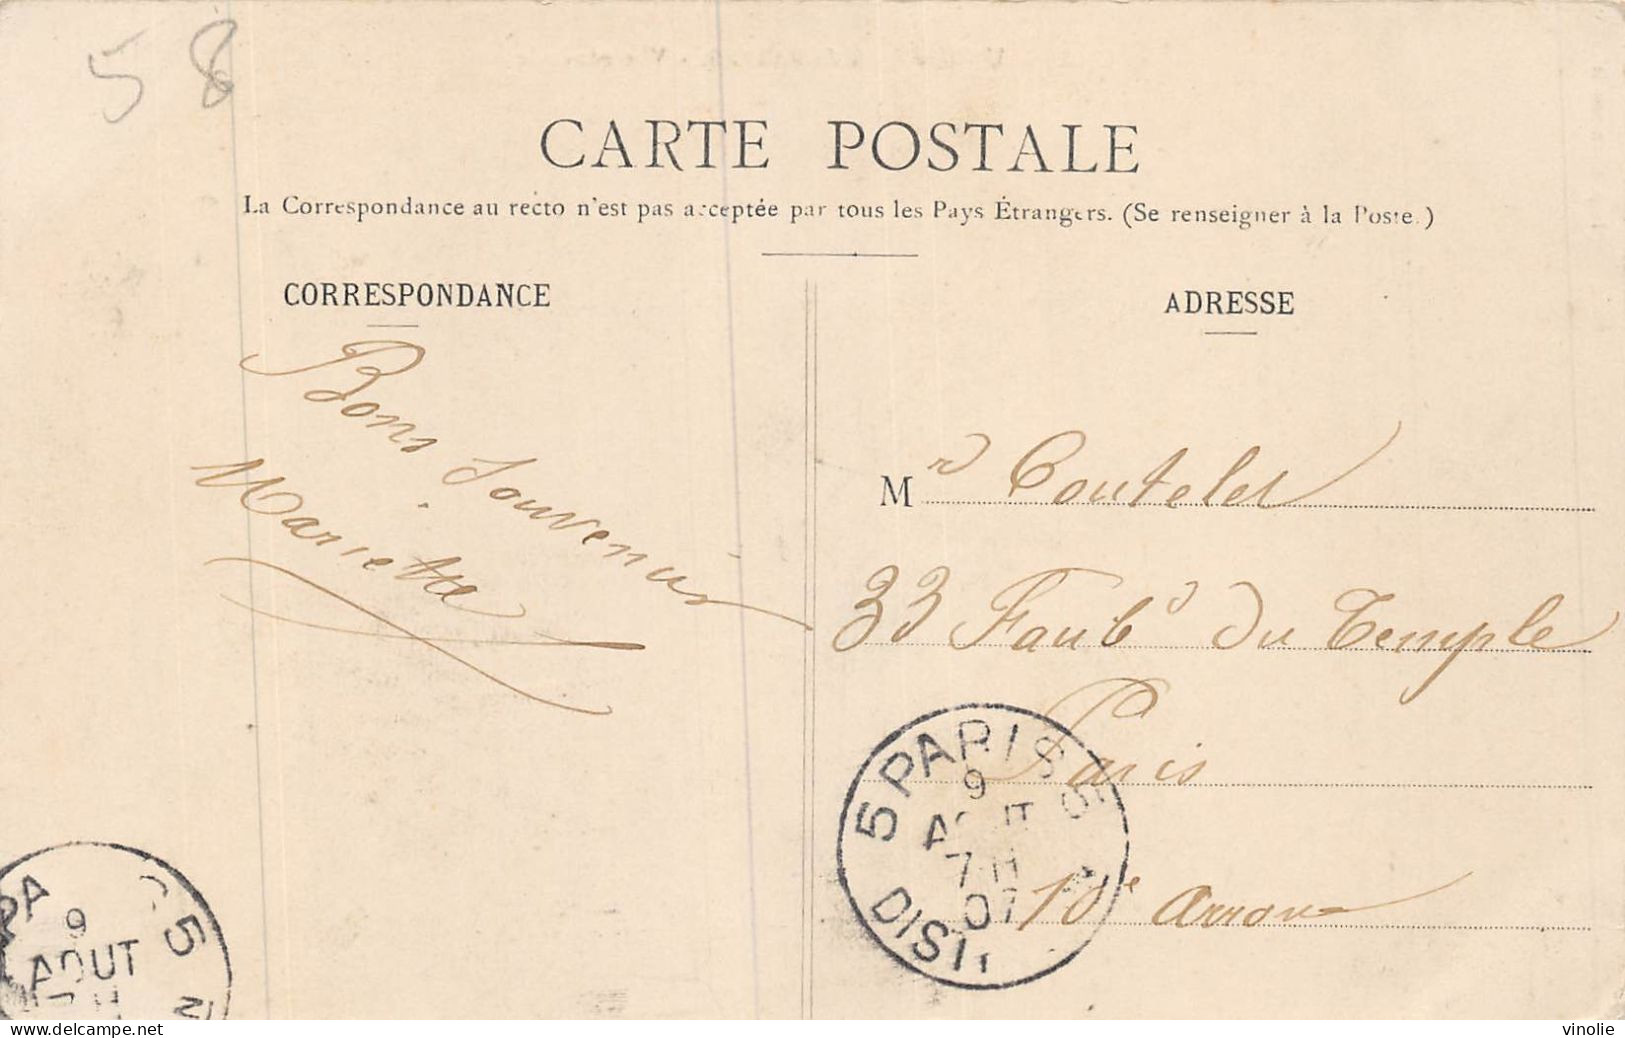 58
CARTE POSTALE
La Correspondance au recto n'est pas acceptée par tous les Pays Étrangers. (Se renseigner à la Poste.)
CORRESPONDANCE
Bons Souvenirs
Marietta
ADRESSE
Mr Coutelet
33 Faubd du Temple
Paris
10e Arron
5 PARIS 5
9
AOUT
7 H
07
DISTR
PA
5
9
AOUT
delcampe.net
vinolie